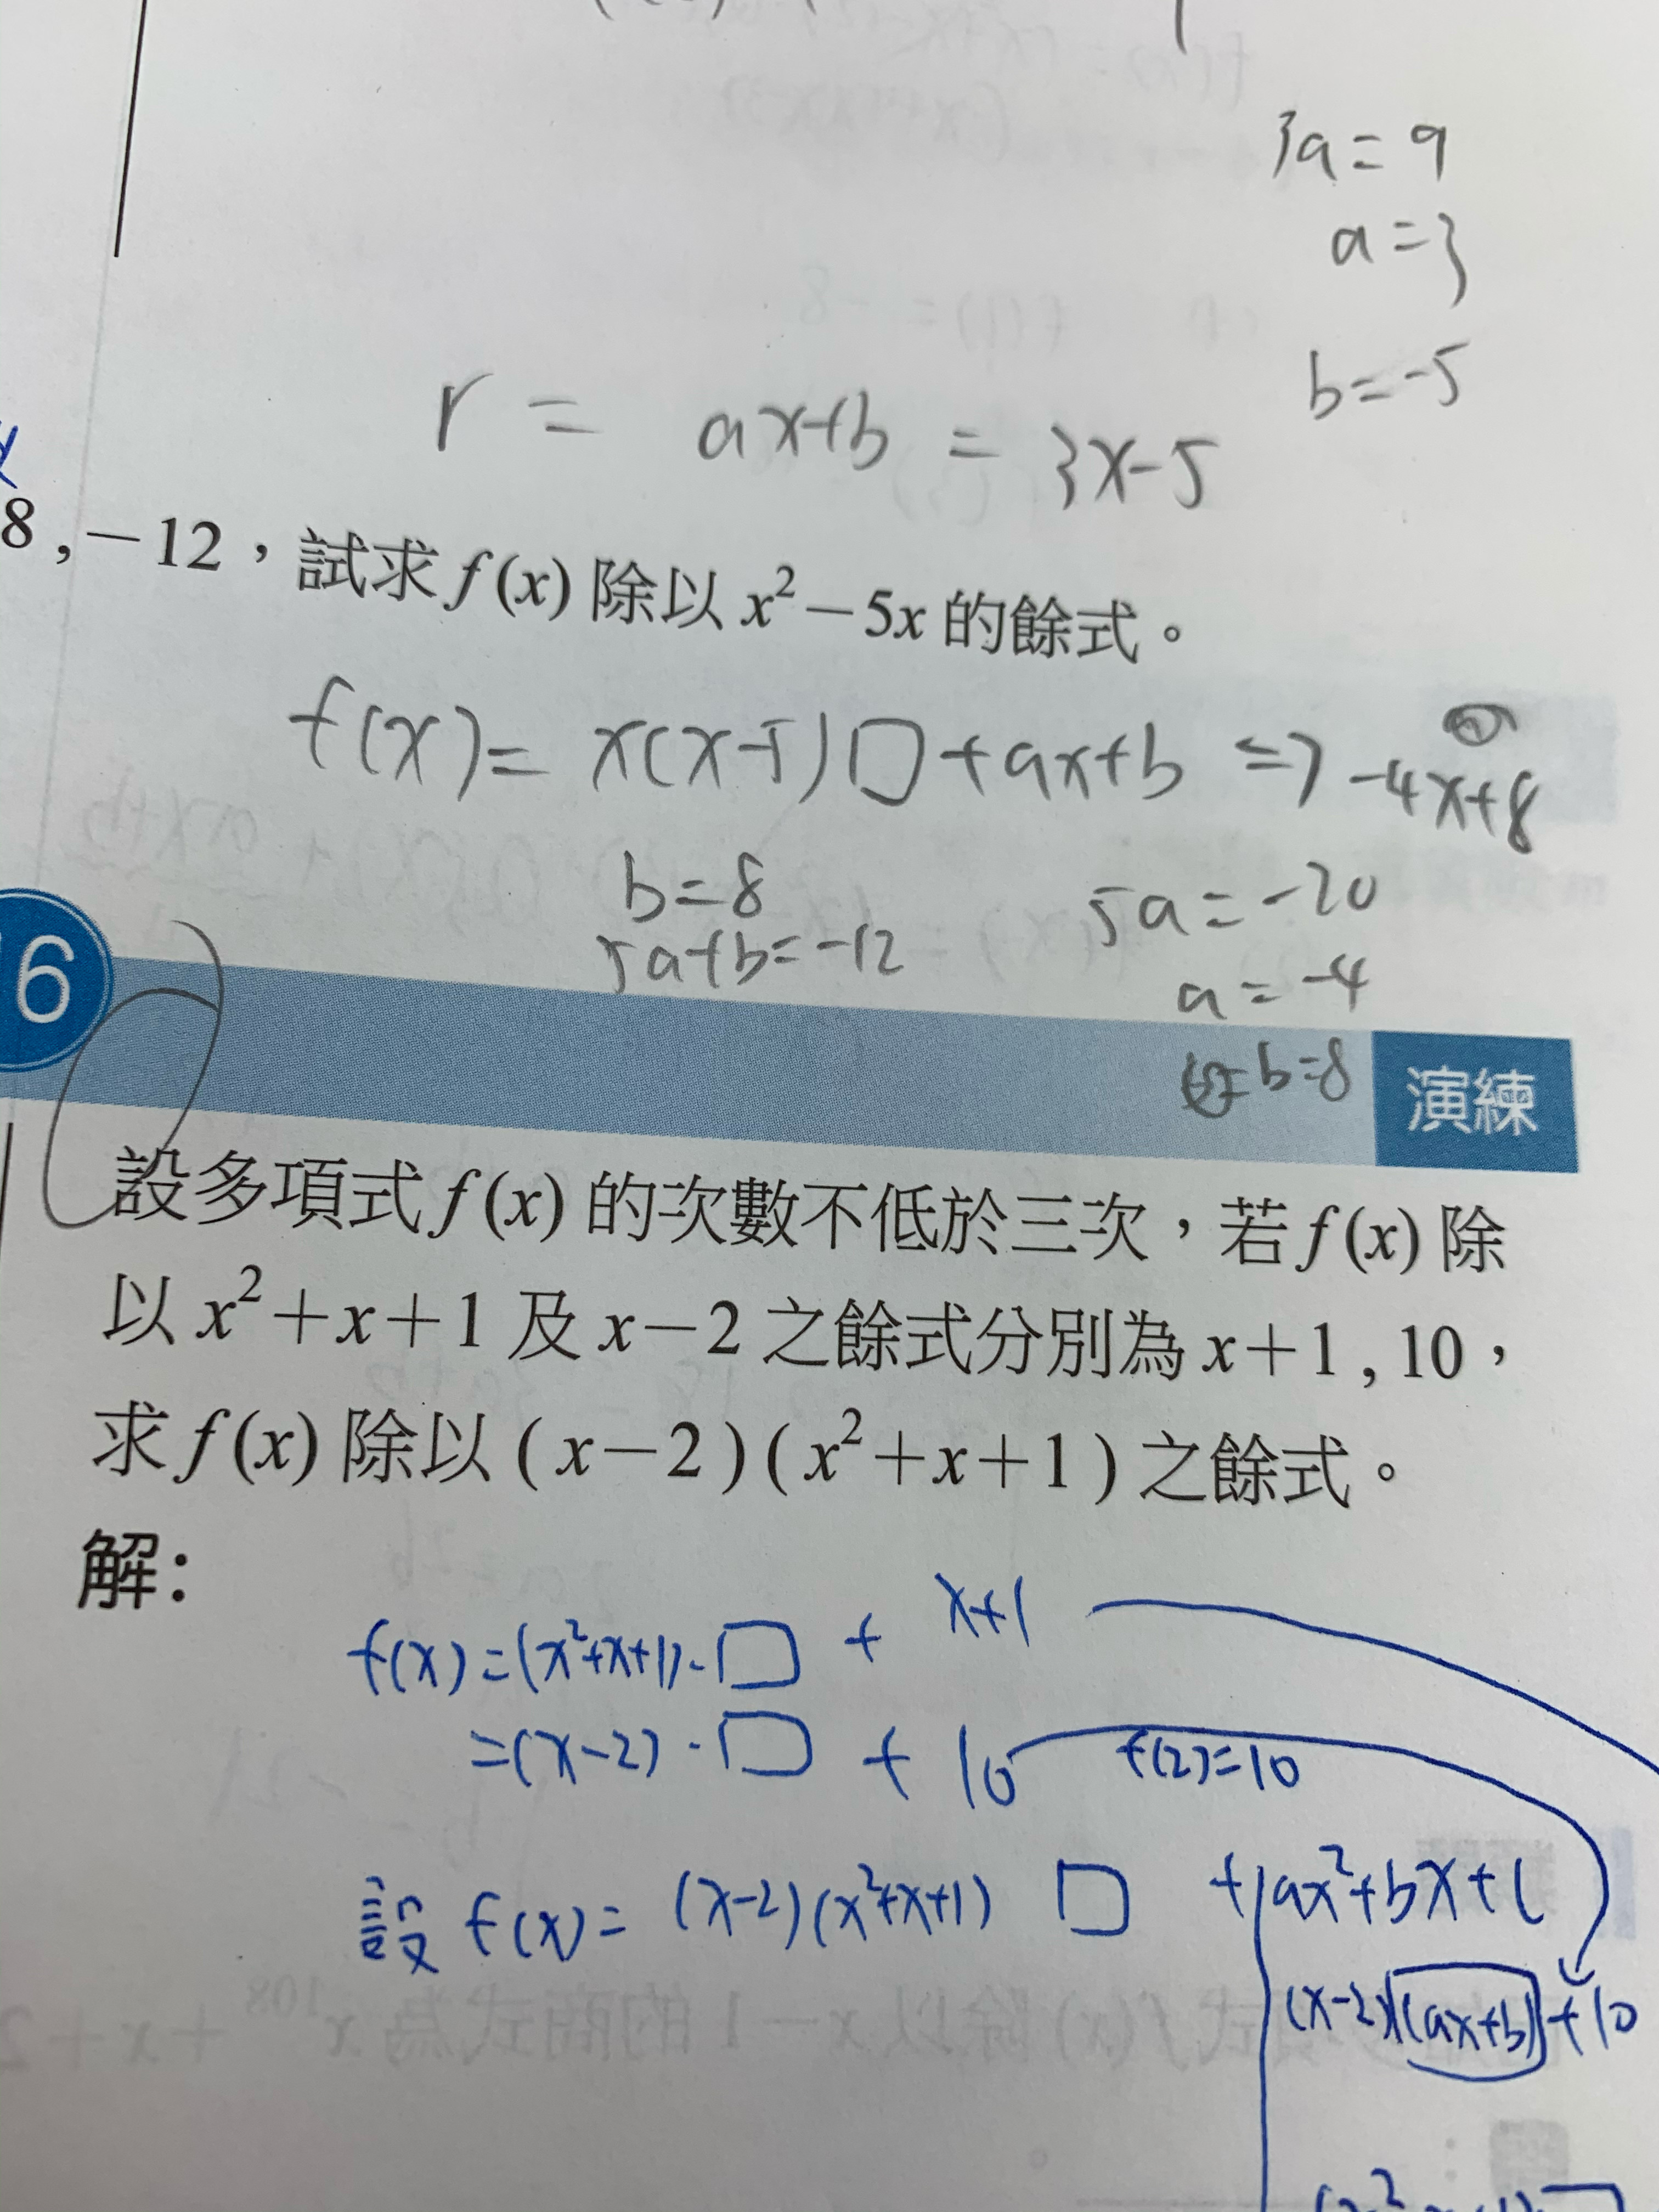 3a = 9
a = 3
b = -5
r = ax+b = 3x-5
8 , -12，試求 f(x) 除以 x² - 5x 的餘式。
f(x) = x(x-5)□ + ax+b => -4x+8
b=8
5a+b=-12
5a = -20
a = -4
b=8
6
演練
設多項式 f(x) 的次數不低於三次，若 f(x) 除
以 x² + x + 1 及 x - 2 之餘式分別為 x + 1 , 10，
求 f(x) 除以 ( x - 2 ) ( x² + x + 1 ) 之餘式。
解：
f(x) = (x²+x+1)·□ + x+1
=(x-2)·□ + 10 f(2)=10
設 f(x) = (x-2)(x²+x+1) □ + ax²+bx+c
(x-2)(ax+b)+10